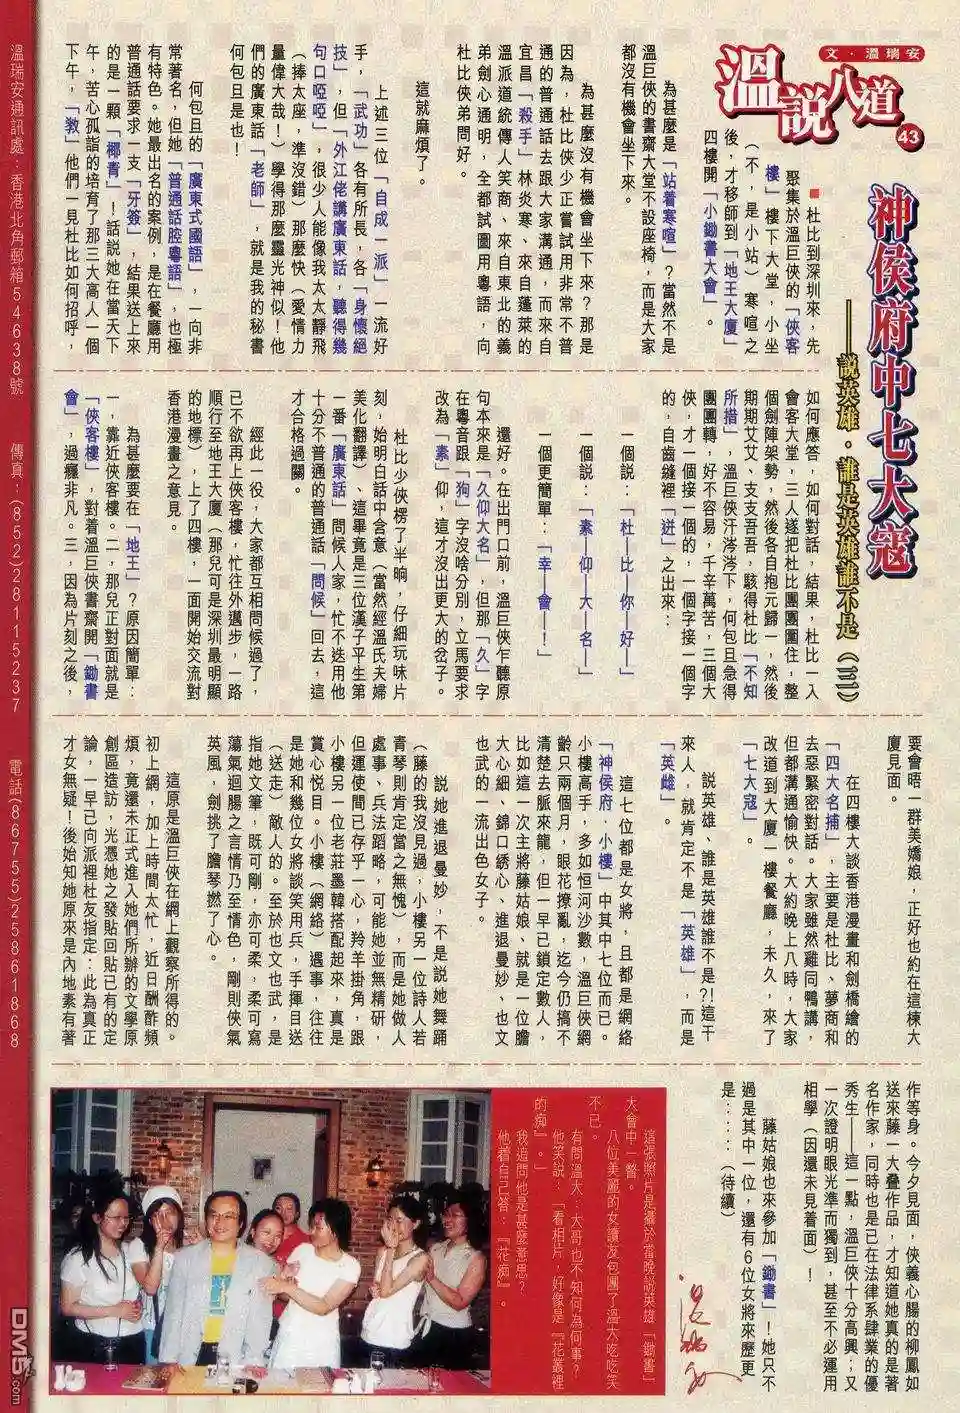 文·溫瑞安
溫說八道
43
神侯府中七大寇
——說英雄·誰是英雄誰不是（三）
■杜比到深圳來，先
聚集於溫巨俠的「俠客
樓」樓下大堂，小坐
（不，是小站）寒喧之
後，才移師到「地王大廈」
四樓開「小鋤書大會」。
為甚麼是「站着寒喧」？當然不是
溫巨俠的書齋大堂不設座椅，而是大家
都沒有機會坐下來。
為甚麼沒有機會坐下來？那是
因為，杜比俠少正嘗試用非常不普
通的普通話去跟大家溝通，而來自
宜昌「殺手」林炎寒、來自蓬萊的
溫派道統傳人笑商、來自東北的義
弟劍心通明，全都試圖用粵語，向
杜比俠弟問好。
這就麻煩了。
上述三位「自成一派」一流好
手，「武功」各有所長，各「身懷絕
技」，但「外江佬講廣東話，聽得幾
句口啞啞」，很少人能像我太太靜飛
（捧太座，準沒錯）那麼快（愛情力
量偉大哉！）學得那麼靈光神似！他
們的廣東話「老師」，就是我的秘書
何包旦是也！
何包旦的「廣東式國語」，一向非
常著名，但她「普通話腔粵語」，也極
有特色。她最出名的案例，是在餐廳用
普通話要求一支「牙簽」，結果送上來
的是一顆「椰青」！話說她在當天下
午，苦心孤詣的培育了那三大高人一個
下午，「教」他們一見杜比如何招呼，
如何應答，如何對話，結果，杜比一入
會客大堂，三人遂把杜比團團圍住，整
個劍陣架勢，然後各自抱元歸一，然後
期期艾艾、支支吾吾，駭得杜比「不知
所措」，溫巨俠汗涔涔下，何包旦急得
團團轉，好不容易，千辛萬苦，三個大
俠，才一個接一個的，一個字接一個字
的，自齒縫裡「迸」之出來：
一個說：「杜—比—你—好—」
一個說：「素—仰—大—名—」
一個更簡單：「幸—會—！」
還好。在出門口前，溫巨俠乍聽原
句本來是「久仰大名」，但那「久」字
在粵音跟「狗」字沒啥分別，立馬要求
改為「素」仰，這才沒出更大的岔子。
杜比少俠楞了半晌，仔細玩味片
刻，始明白話中含意（當然經溫氏夫婦
美化翻譯），這畢竟是三位漢子平生第
一番「廣東話」問候人家，忙不迭用他
十分不普通的普通話「問候」回去，這
才合格過關。
經此一役，大家都互相問候過了，
已不欲再上俠客樓，忙往外邁步，一路
順行至地王大廈（那兒可是深圳最明顯
的地標），上了四樓，一面開始交流對
香港漫畫之意見。
為甚麼要在「地王」？原因簡單：
一，靠近俠客樓。二，那兒正對面就是
「俠客樓」，對着溫巨俠書齋開「鋤書
會」，過癮非凡。三，因為片刻之後，
要會晤一群美嬌娘，正好也約在這棟大
廈見面。
在四樓大談香港漫畫和劍橋繪的
「四大名捕」，主要是杜比、夢商和
去惡緊密對話。大家雖然雞同鴨講，
但都溝通愉快。大約晚上八時，大家
改道到大廈一樓餐廳，未久，來了
「七大寇」。
說英雄、誰是英雄誰不是?!這干
來人，就肯定不是「英雄」，而是
「英雌」。
這七位都是女將，且都是網絡
「神侯府·小樓」中其中七位而已。
小樓高手，多如恒河沙數，溫巨俠網
齡只兩個月，眼花撩亂，迄今仍搞不
清楚去脈來龍，但一早已鎖定數人，
比如這一次主將藤姑娘、就是一位膽
大心細、錦口綉心、進退曼妙、也文
也武的一流出色女子。
說她進退曼妙，不是說她舞踊
（藤的我沒見過，小樓另一位詩人若
青琴則肯定當之無愧），而是她做人
處事、兵法蹈略，可能她並無精研，
但運使間已存乎一心，羚羊掛角，跟
小樓另一位老莊墨韓搭配起來，真是
賞心悅目。小樓（網絡）遇事，往往
是她和幾位女將談笑用兵，手揮目送
（送走）敵人的。至於也文也武，是
指她文筆，既可剛，亦可柔，柔可寫
蕩氣迴腸之言情乃至情色，剛則俠氣
英風，劍挑了膽琴撚了心。
這原是溫巨俠在網上觀察所得的。
初上網，加上時間太忙，近日酬酢頻
煩，竟還未正式進入她們所辦的文學原
創區造訪，光憑她之發貼回貼已有的定
論，一早已向派裡杜友指定：此為真正
才女無疑！後始知她原來是內地素有著
作等身。今夕見面，俠義心腸的柳鳳如
送來藤一大叠作品，才知道她真的是著
名作家，同時也是已在法律系肆業的優
秀生——這一點，溫巨俠十分高興；又
一次證明眼光準而獨到，甚至不必運用
相學（因還未見着面）！
藤姑娘也來參加「鋤書」！她只不
過是其中一位，還有6位女將來歷更
是……（待續）
這張照片是攝於當晚說英雄「鋤書」
大會中一瞥。
八位美麗的女讀友包圍了溫大吃吃笑
不已。
有問溫太：大哥也不知何為何事？
他笑說：「看相片，好像是『花叢裡
的痴』。」
我追問他是甚麼意思？
他着自己答：『花痴』。
溫瑞安通訊處：香港北角郵箱54638號
傳真：(852)28115237
電話(86755)25861868
DM5.com